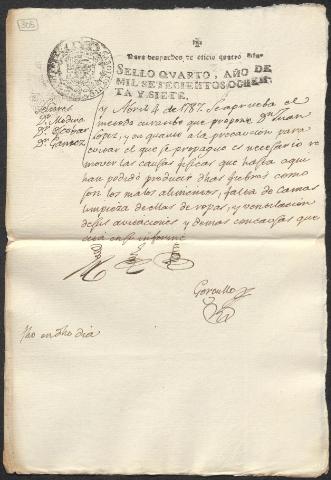 305
Para despachos de oficio quatro mrs.
SELLO QVARTO, AÑO DE
MIL SETECIENTOS OCHEN-
TA Y SIETE.
Señores
Dr. Medina
Dr. Escobar
Dr. Gamez
y Abril 4 de 1787. Se aprueba el
metodo curativo que propone Dn. Juan
Lopez, y en quanto a la precaucion para
evitar el que se propague es necesario re-
mover las causas fisicas que hasta aqui
han podido producir dhas fiebres como
son los malos alimentos, falta de camas
limpieza de ellas de ropas, y ventilacion
de sus avitaciones y demas concausas que
cita en su informe
Gorvullo
fho en dho dia